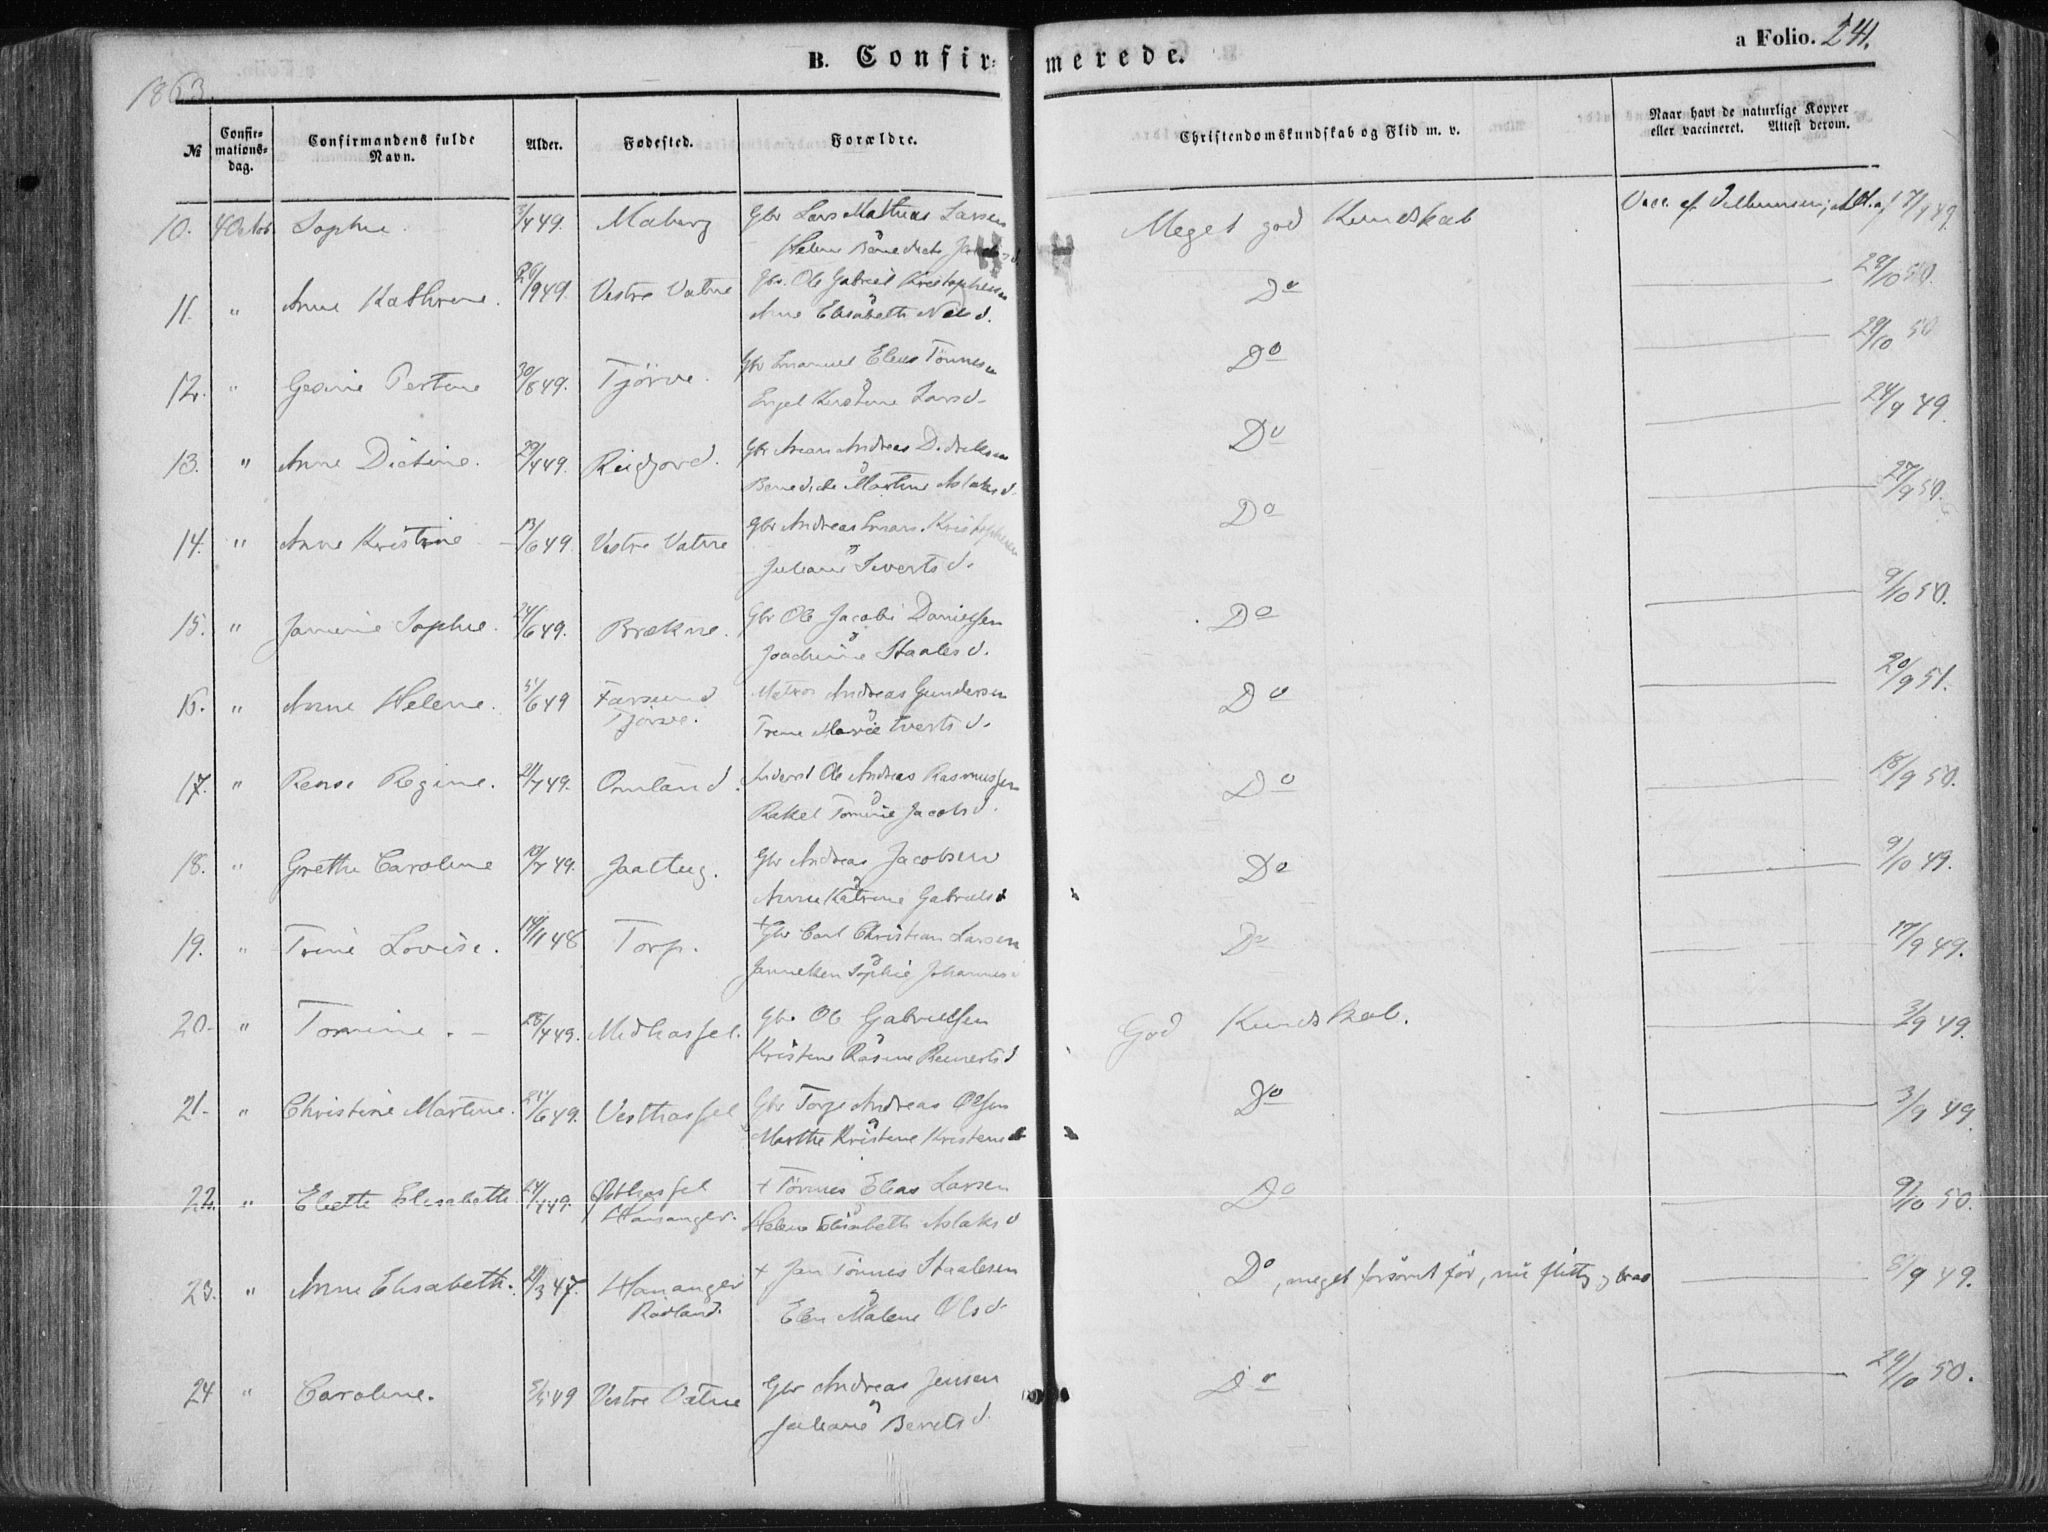 1863.
B. Confirmerede.
a Folio. 241.
№
Confir-
mations-
dag.
Confirmandens fulde
Navn.
Alder.
Fødested.
Forældre.
Christendomskundskab og Flid m. v.
Naar havt de naturlige Kopper
eller vaccineret. Attest derom.
10. 4 Octob. Sophie 3/4 49. Maberg Gbr Lars Mathias Larsen Meget god Kundskab Vacc. af
Helene Benedicte
11. " Anne Kathrine. 26/9 49. Vestre Vatne Gbr. Ole Gabriel Kristophersen Do 29/10 50.
Anne Elisabeth Nelsd.
12. " Gesine Pertine 30/8 49. Tjörve. Gbr Emanuel Elias Tönnesen Do 29/10 50
Engel Kirstine Larsd.
13. " Anne Dictine. 29/4 49. Reidjord. Gbr Andreas Didriksen Do 24/9 49.
Benedicte Martine Aslaksd.
14. " Anne Kristine 13/6 49. Vestre Vatne Gbr Andreas Kristophersen Do 27/9 50.
Juliane Sivertsd.
15. " Janine Sophie. 24/6 49. Brækne. Gbr Ole Jacob Danielsen Do 9/10 50.
Joachime Staalesd.
16. " Anne Helene. 5/6 49 Farsund Matros Andreas Gundersen Do 20/9 51.
Tjörve. Trine Marie Evertsd.
17. " Regine. 21/7 49. Omland. Ole Andreas Rasmussen Do 18/9 50.
Rakel Tomine Jacobsd.
18. " Grethe Caroline 19/7 49. Jaatug. Gbr Andreas Jacobsen Do 9/10 49.
Anne Katrine Gabrielsd
19. " Trine Lovise. 14/11 48 Torp. + Gbr Carl Christian Larsen Do 17/9 49.
Janneken Sophie Johannesd
20. " Tomine. 28/4 49. Midhassel. Gbr Ole Gabrielsen God Kundskab. 3/9 49.
Kristine Rasine Reinertsd
21. " Christine Martine. 24/6 49. Vesthassel Gbr Torje Andreas Olsen Do 3/9 49.
Marthe Kristine Kristensd
22. " Elette Elisabeth 24/4 49. Østhassel + Tönnes Elias Larsen Do 9/10 50.
Hananger. Helene Elisabeth Aslaksd
23. " Anne Elisabeth. 21/3 47. Hananger + Jan Tönnes Staalesen Do, meget forsömt för, nu flittig og brav 5/9 49.
Rödland. Elen Malene Olsd.
24 " Caroline. 5/5 49 Vestre Vatne Gbr Andreas Jensen Do 29/10 50.
Juliane Berntsd.